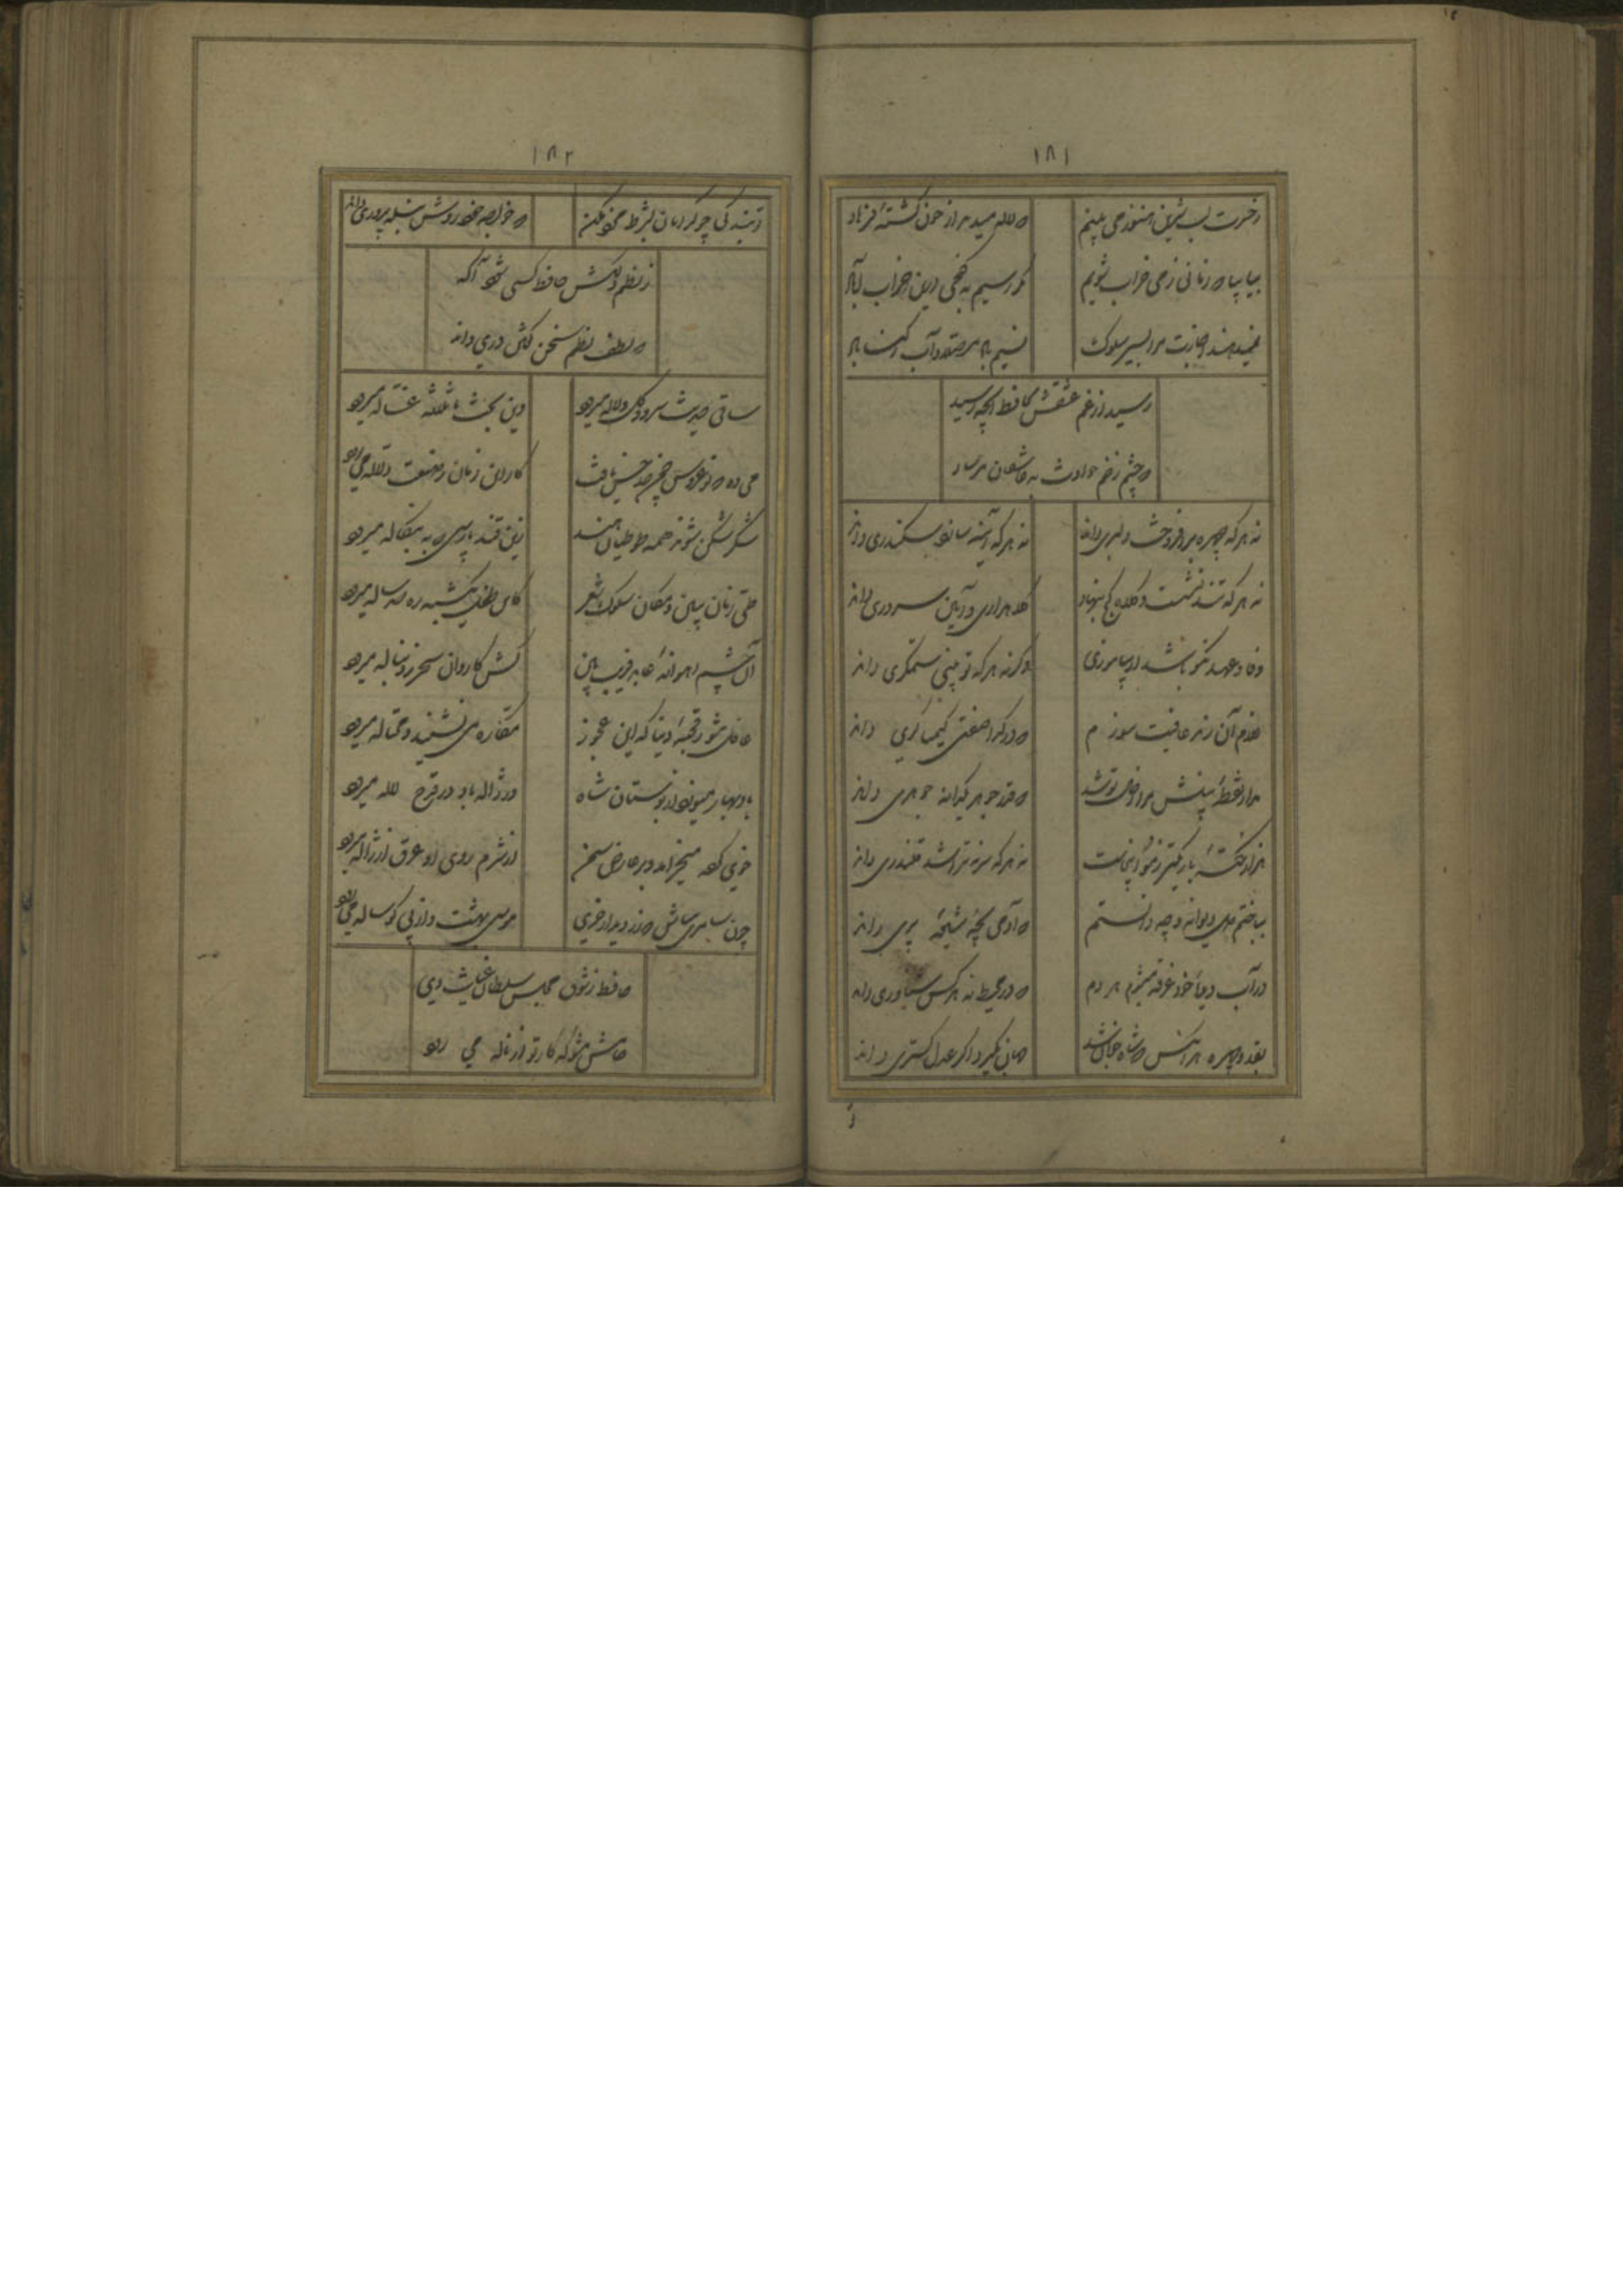 ۱۸۱
ز حسرت لب شیرین هنوز می بینم
که لاله میدمد از خون کشتهٔ فرهاد
بیا بیا که زمانی ز می خراب شویم
مگر رسیم به کنجی درین خراب آباد
نمیدهند اجازت مرا بسیر سلوک
نسیم باد مصلا و آب رکناباد
رسید از غم عشقش بحافظ آنچه رسید
که چشم زخم حوادث به عاشقان مرساد
نه هر که چهره برافروخت دلبری داند
نه هر که آینه سازد سکندری داند
نه هر که تند نشست و کلاه کج بنهاد
کلاه داری و آیین سروری داند
وفا و عهد نکو باشد ار بیاموزی
وگرنه هر که تو بینی ستمگری داند
غلام آن رند عافیت سوزم
که در کدا صفتی کیمیاگری داند
مدار نقطهٔ بینش مرا ز خال تو شد
که قدر جوهر یکدانه جوهری داند
هزار نکتهٔ باریکتر ز مو اینجاست
نه هر که سر نتراشد قلندری داند
بباختم دل دیوانه و چه دانستم
که آدمی بچه شیوهٔ پری داند
در آب دیدهٔ خود غرقه میشوم هر دم
که در محیط نه هر کس شناوری داند
بقد و چهره هر آنکس که شاه خوبان شد
جهان بگیرد اگر عدل گستری داند
تو
۱۸۲
تو بندگی چو گدایان بشرط مزد مکن
که خواجه خود روش بنده پروری داند
ز نظم دلکش حافظ کسی شود آگه
که لطف نظم سخن گفتن دری داند
ساقی حدیث سرو و گل و لاله میرود
وین بحث با ثلاثهٔ غساله میرود
می ده که نوعروس چمن حد حسن یافت
کار این زمان ز صنعت دلاله می رود
شکر شکن شوند همه طوطیان هند
زین قند پارسی که به بنگاله میرود
طی زمان ببین و مکان سلوک شعر
کاین طفل یکشبه ره صد ساله میرود
آن چشم آهوانهٔ عابد فریب بین
کش کاروان سحر ز دنباله میرود
غافل مشو ز قحبهٔ دنیا که این عجوز
مکاره می نشیند و محتاله میرود
باد بهار میوزد از بوستان شاه
وز ژاله باده در قدح لاله میرود
خوی کرده میخرامد و بر عارض سمن
از شرم روی او عرق از ژاله میرود
چون سامری مباش که زر دید از خری
موسی بهشت و از پی گوساله می رود
حافظ ز شوق مجلس سلطان غیاث دین
خامش مشو که کار تو از ناله می رود